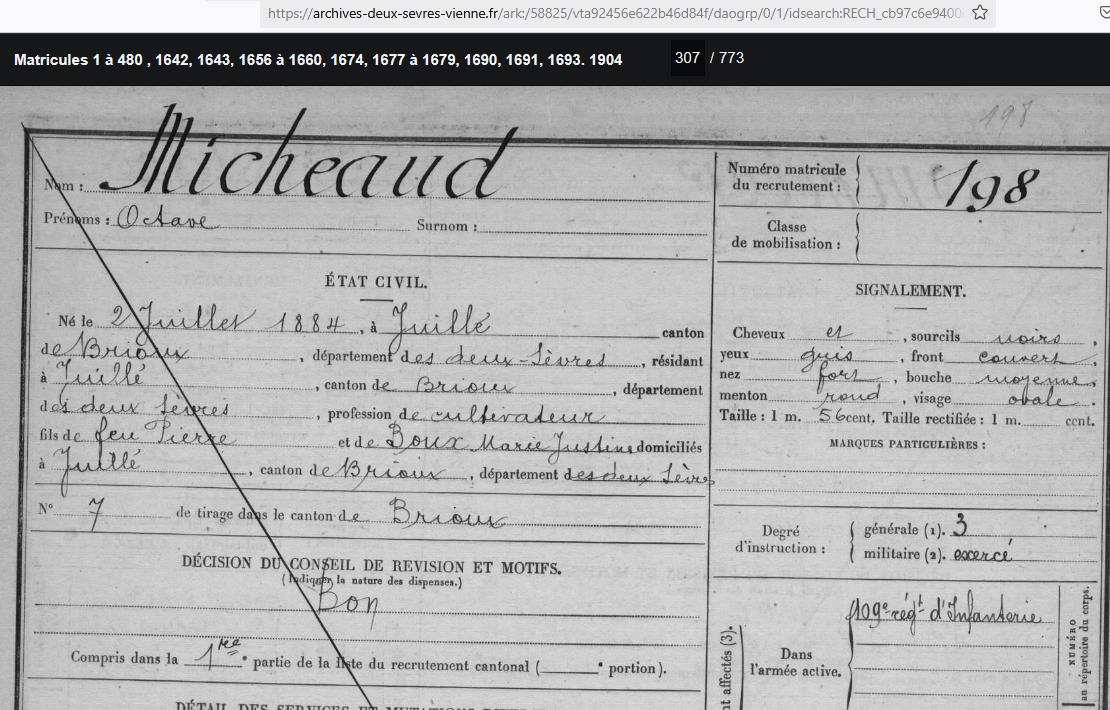 https://archives-deux-sevres-vienne.fr/ark:/58825/vta92456e622b46d84f/daogrp/0/1/idsearch:RECH_cb97c6e9400
Matricules 1 à 480 , 1642, 1643, 1656 à 1660, 1674, 1677 à 1679, 1690, 1691, 1693. 1904 307 / 773
198
Nom : Micheaud
Prénoms : Octave Surnom :
Numéro matricule du recrutement : 198
Classe de mobilisation :
ÉTAT CIVIL.
Né le 2 Juillet 1884, à Juillé canton
de Brioux, département des deux-Sèvres, résidant
à Juillé, canton de Brioux, département
des deux Sèvres, profession de cultivateur
fils de feu Pierre et de Doux Marie Justine domiciliés
à Juillé, canton de Brioux, département des deux Sèvres
N° 7 de tirage dans le canton de Brioux
SIGNALEMENT.
Cheveux et, sourcils noirs,
yeux gris, front couvert,
nez fort, bouche moyenne,
menton rond, visage ovale.
Taille : 1 m. 56 cent. Taille rectifiée : 1 m. cent.
MARQUES PARTICULIÈRES :
Degré d'instruction : générale (1). 3
militaire (2). exercé
DÉCISION DU CONSEIL DE REVISION ET MOTIFS.
(Indiquer la nature des dispenses.)
Bon
Compris dans la 1re partie de la liste du recrutement cantonal ( e portion).
DÉTAIL DES SERVICES ET MUTATIONS
affectés (3).
Dans l'armée active.
109e régt d'Infanterie
NUMÉRO
au répertoire du corps.